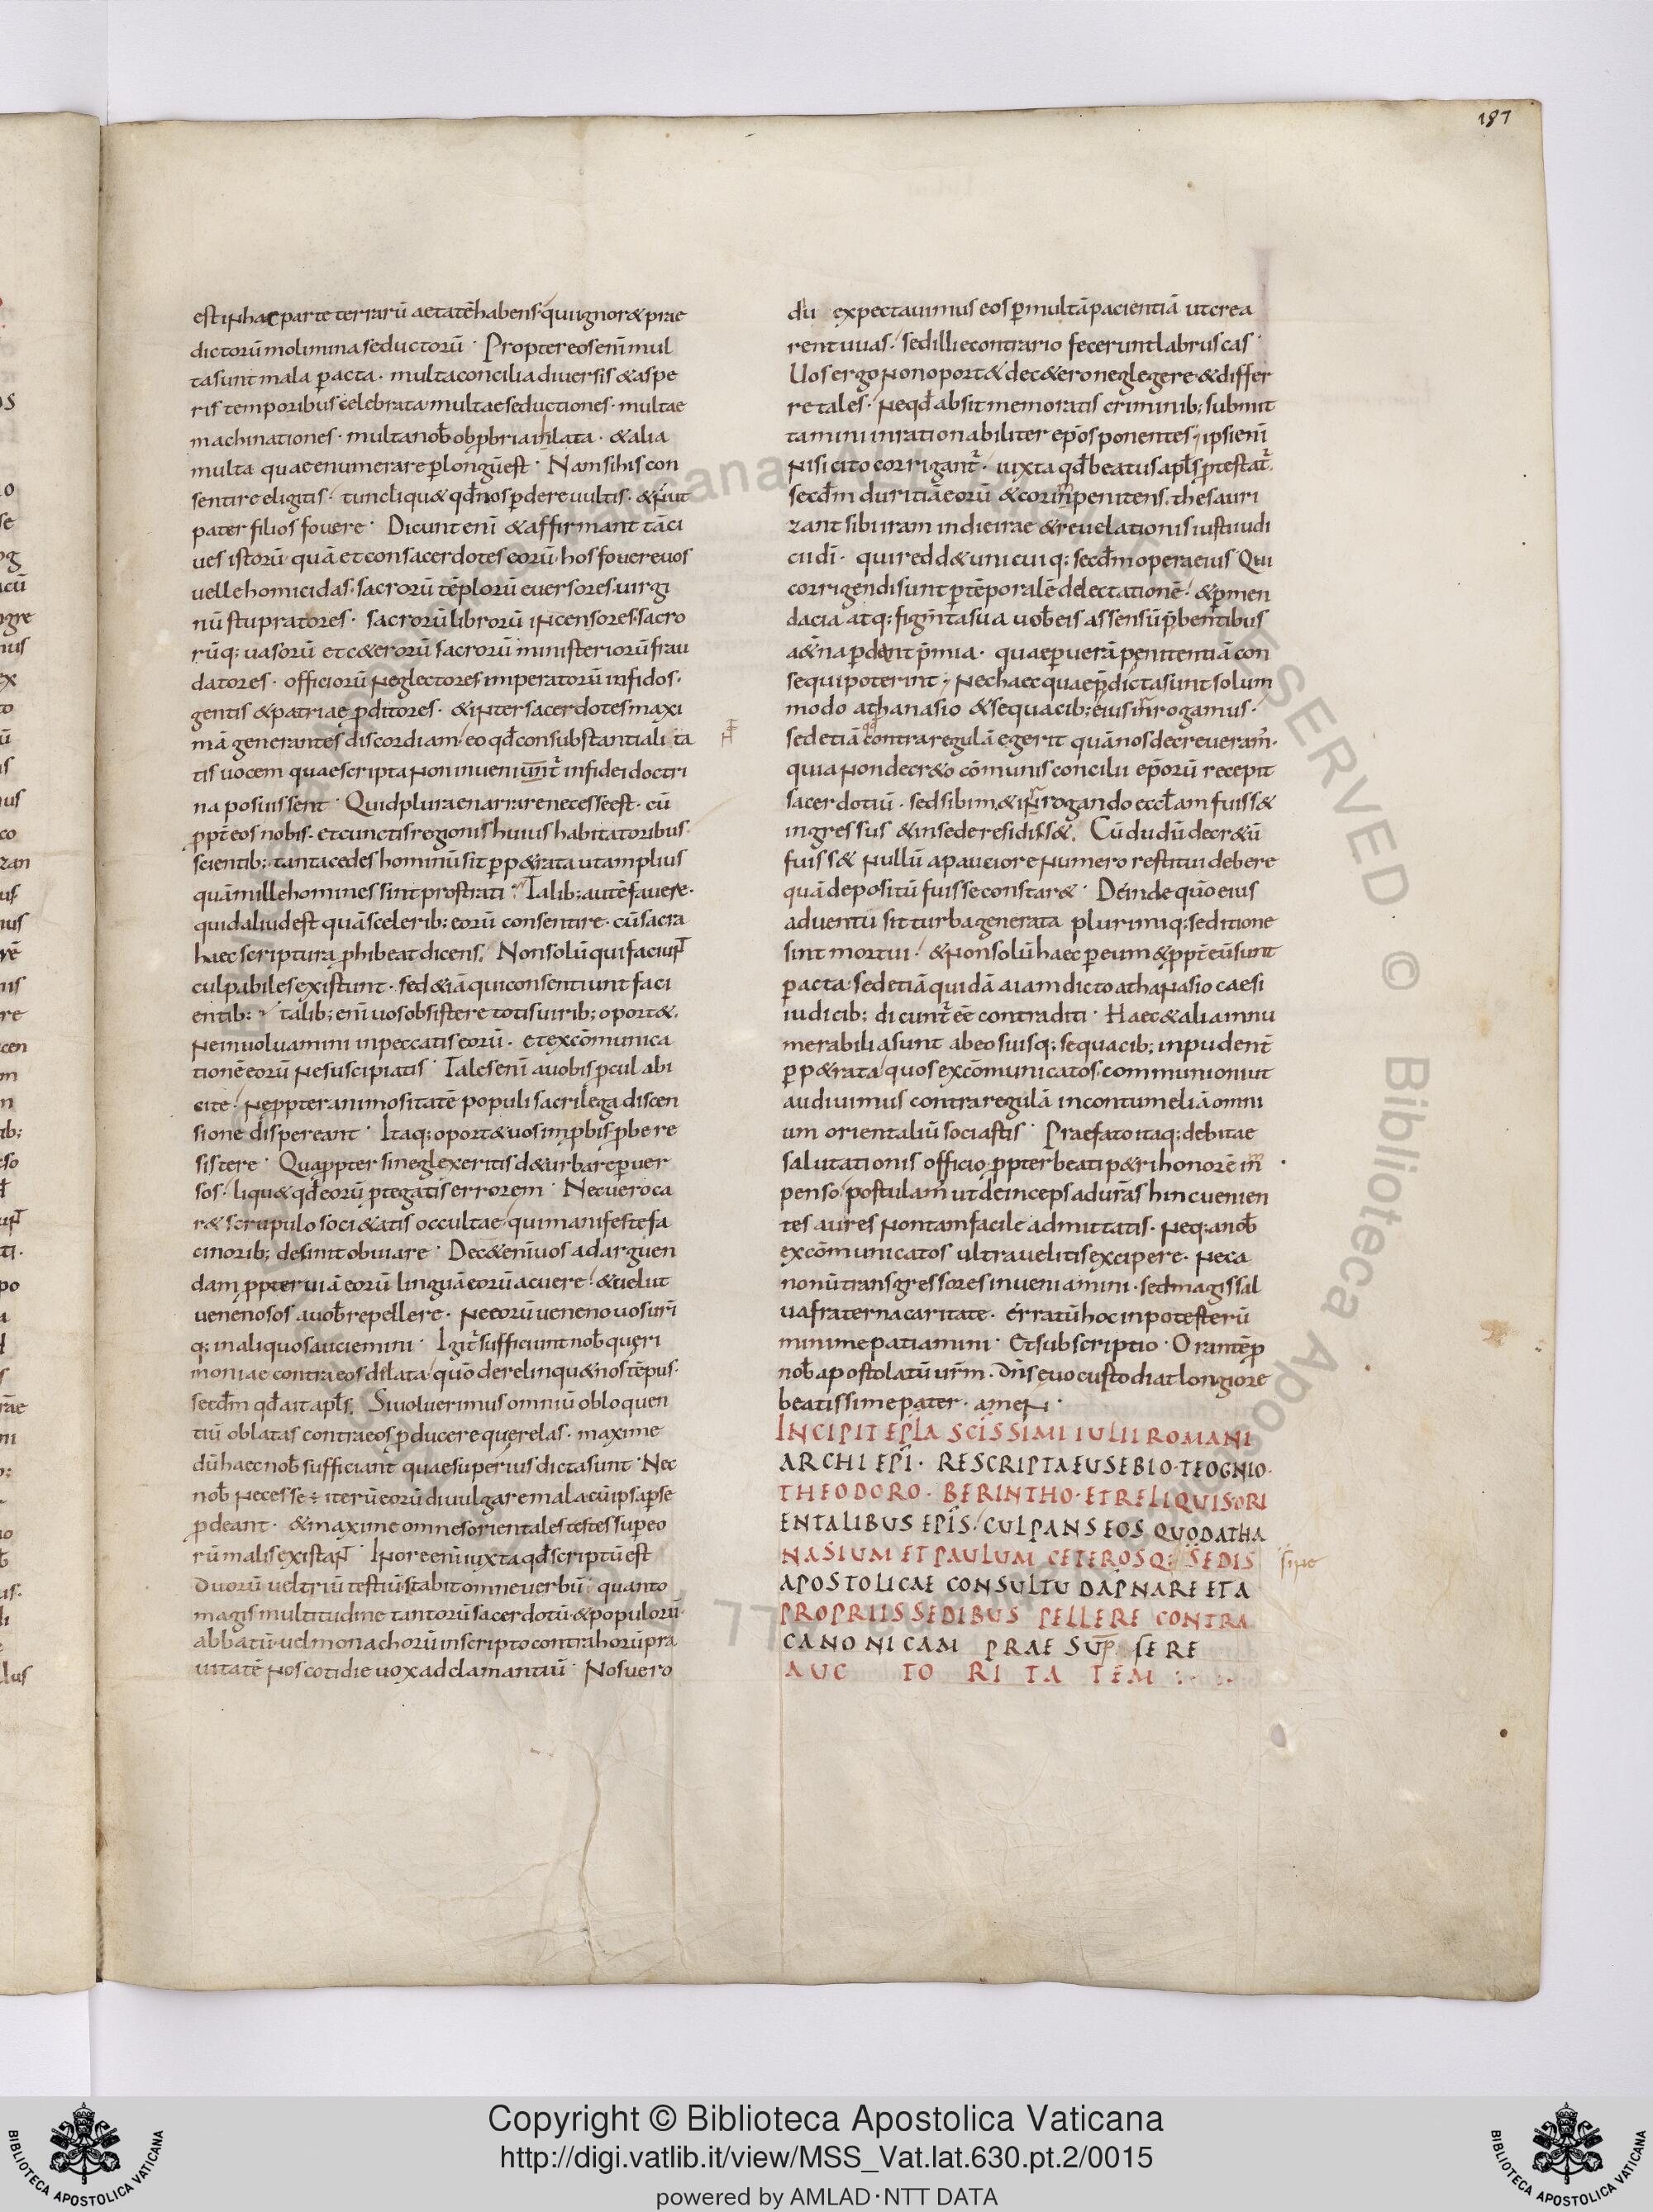 187
est in hac parte terrarū aetatē habens qui ignor& prae
dictorū molimina seductorū· Propter eos enī mul
ta sunt mala ꝑacta· multa concilia diuersis & aspe
ris temporibus celebrata multae seductiones· multae
machinationes· multa nob̄ obꝓbria inlata· & alia
multa quae enumerare ꝑlongū est· Nam si his con
sentire eligitis· tunc liqu& qd̄ nos ꝑdere uultis· & n̄ ut
pater filios fouere· Dicunt enī & affirmant tā ci
ues istorū quā et consacerdotes eorū hos fouere uos
uelle homicidas· sacrorū tēplorū euersores· uirgi
nū stupratores· sacrorū librorū incensores· sacro
rūq; uasorū et c&erorū sacrorū ministeriorū frau
datores· officiorū neglectores imperatorū infidos·
gentis & patriae ꝓditores· & inter sacerdotes maxi
mā generantes discordiam eo qd̄ consubstantialita
tis uocem quae scripta non inueniunt̄ in fidei doctri
na posuissent· Quid plura enarrare necesse est· cū
ꝓpt̄ eos nobis· et cunctis regionis huius habitatoribus
scientib; tanta cedes hominū sit ꝑp&rata ut amplius
quā mille homines sint prostrati· Talib; autē fauere·
quid aliud est quā scelerib; eorū consentire· cū sacra
haec scriptura ꝓhibeat dicens· Non solū qui faciunt
culpabiles existunt· sed &iā qui consentiunt faci
entib; talib; enī uos obsistere totis uirib; oport&·
ne inuoluamini in peccatis eorū· et excōmunica
tionē eorū ne suscipiatis· Tales enī a uobis ꝓcul abi
cite· ne ꝓpter animositatē populi sacrilega discen
sione dispereant· Itaq; oport& uos imꝓbis ꝓbe re
sistere· Quaꝓpter si neglexeritis d&urbare ꝑuer
sos· liqu& qd̄ eorū ꝓtegatis errorem· Nec uero ca
r& scrupulo soci&atis occultae qui manifeste fa
cinorib; desinit obuiare· Dec& enī uos ad arguen
dam ꝓpter uiā eorū linguā eorū acuere· & uelut
uenenosos a uob̄ repellere· ne eorū ueneno uos urī
q; in aliquo sauciemini· Igit̄ sufficiunt nob̄ queri
moniae contra eos dilata quō derelinqu& nos tēpus·
secd̄m qd̄ ait apl̄s· Si uoluerimus omniū obloquen
tiū oblatas contra eos ꝓducere querelas· maxime
dū haec nob̄ sufficiant quae superius dicta sunt· Nec
nob̄ necesse ÷ iterū eorū diuulgare mala cū ipsa ꝑ se
ꝓdeant· & maxime omnes orientales testes suꝑ eo
rū malis existant· In ore enī iuxta qd̄ scriptū est
duorū uel triū testiū stabit omne uerbū· quanto
magis multitudine tantorū sacerdotū & populorū·
abbatū· uel monachorū in scripto contra horū pra
uitatē nos cotidie uox adclamantiū· Nos uero
du expectauimus eos ꝑ multā pacientiā ut crea
rent uuas· sed illi econtrario fecerunt labruscas·
Uos ergo non oport& dec&ero neglegere & differ
re tales· ne qd̄ absit memoratis criminib; submit
tamini inrationabiliter ep̄os ponentes· ipsi enī
nisi cito corrigant̄· iuxta qd̄ beatus apl̄s ꝓtestat̄·
secd̄m duritiā eorū & cor inpenitens· thesauri
zant sibi iram in die irae & reuelationis iusti iudi
cii dī· qui redd& unicuiq; secd̄m opera eius· Qui
corrigendi sunt ꝑ tēporalē delectationē· & ꝑ men
dacia atq; figm̄ta sua uob̄ eis assensū p̄bentibus
a&na ꝑdant p̄mia· quae ꝑ uerā penitentiā con
sequi poterint· Nec haec quae p̄dicta sunt solum
modo athanasio & sequacib; eius inrogamus·
sed etiā contra regulā egerit quā nos decreueram̄·
quia non decr&o cōmunis concilii ep̄orū recepit
sacerdotiū· sed sibim& inrogando eccl̄am fuiss&
ingressus & in sede residiss&· Cū dudū decr&ū
fuiss& nullū a pauciore numero restitui debere
quā depositū fuisse constar&· Deinde quō eius
aduentū sit turba generata plurimiq; seditione
sint mortui· & non solū haec ꝑ eum & ꝓpt̄ eū sunt
ꝑacta sed etiā quidā a iam dicto athanasio caesi
iudicib; dicunt̄ eē contraditi· Haec & alia innu
merabilia sunt ab eo suisq; sequacib; inpudent̄
ꝑp&rata quos excōmunicatos communioni ut
audiuimus contra regulā in contumeliā omni
um orientaliū sociastis· Praefato itaq; debitae
salutationis officio ꝓpter beati p&ri honorē in
penso postulam̄ ut deinceps adurās hinc uenien
tes aures non tam facile admittatis· neq; a nob̄
excōmunicatos ultra uelitis excipere· ne ca
nonū transgressores inueniamini· sed magis sal
ua fraterna caritate· erratū hoc in posterū
minime patiamini· Et subscriptio· Orantē ꝓ
nob̄ apostolatū ur̄m· dn̄s euo custodiat longiore
beatissime pater· amen·
INCIPIT EPL̄A SCĪSSIMI IULII ROMANI
ARCHIEPĪ· RESCRIPTA EUSEBIO· TEOGNIO·
THEODORO· BERINTHO· ET RELIQUIS ORI
ENTALIBUS EPĪS· CULPANS EOS QUOD ATHA
NASIUM ET PAULUM CETEROSQ; SEDIS
sine
APOSTOLICAE CONSULTU DAPNARE ET A
PROPRIIS SEDIBUS PELLERE CONTRA
CANONICAM PRAESŪPSERE
AUCTORITATEM
Copyright © Biblioteca Apostolica Vaticana
http://digi.vatlib.it/view/MSS_Vat.lat.630.pt.2/0015
powered by AMLAD·NTT DATA
BIBLIOTECA APOSTOLICA VATICANA
BIBLIOTECA APOSTOLICA VATICANA